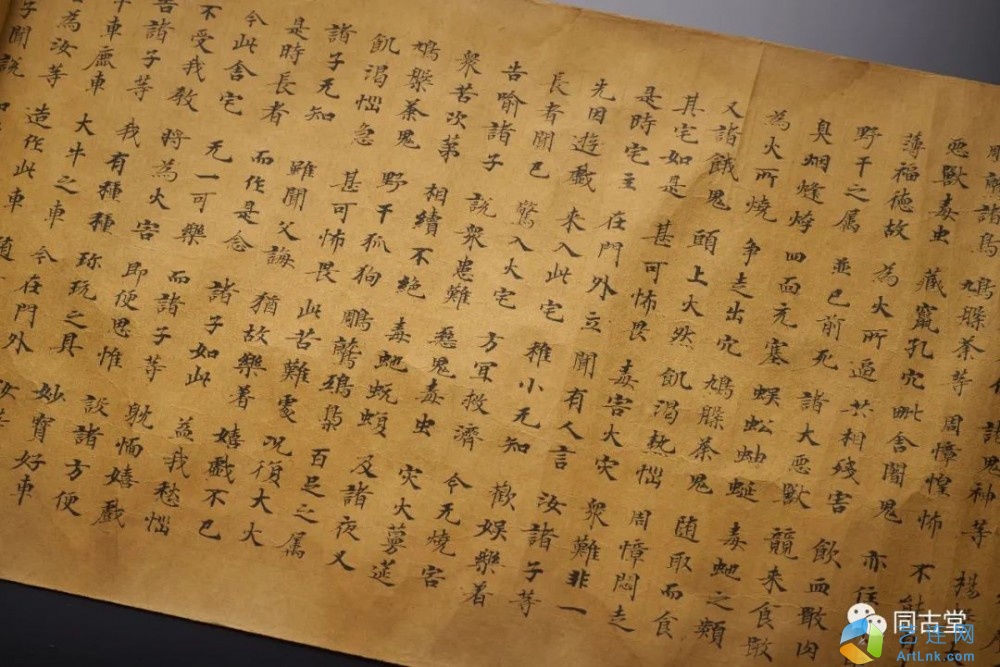 諸鬼神等 楊
鵰鷲諸鳥 鳩槃荼等 周慞惶怖 不能
惡獸毒虫 藏竄孔穴 毗舍闍鬼 亦住
薄福德故 為火所逼 共相殘害 飲血噉肉
野干之属 並已前死 諸大惡獸 競来食噉
臭烟熢㶿 四面充塞 蜈蚣蚰蜒 毒虵之類
為火所燒 爭走出穴 鳩槃茶鬼 随取而食
又諸餓鬼 頭上火然 飢渴熱惱 周慞悶走
其宅如是 甚可怖畏 毒害火灾 衆難非一
是時宅主 在門外立 聞有人言 汝諸子等
先因遊戲 来入此宅 稚小无知 歡娛樂著
長者聞已 驚入火宅 方宜救濟 令无燒害
告喻諸子 説衆患難 惡鬼毒虫 灾火蔓莚
衆苦次第 相續不絶 毒虵蚖蝮 及諸夜叉
鳩槃茶鬼 野干狐狗 鵰鷲鵄梟 百足之属
飢渴惱急 甚可怖畏 此苦難處 况復大火
諸子无知 雖聞父誨 猶故樂著 嬉戲不已
是時長者 而作是念 諸子如此 益我愁惱
今此舍宅 无一可樂 而諸子等 躭湎嬉戲
不受我教 將為火害 即便思惟 設諸方便
告諸子等 我有種種 珎玩之具 妙寳好車
羊車鹿車 大牛之車 今在門外 汝等
為汝等 造作此車 随
子聞説 如
同古堂
艺连网
ArtLnk.com